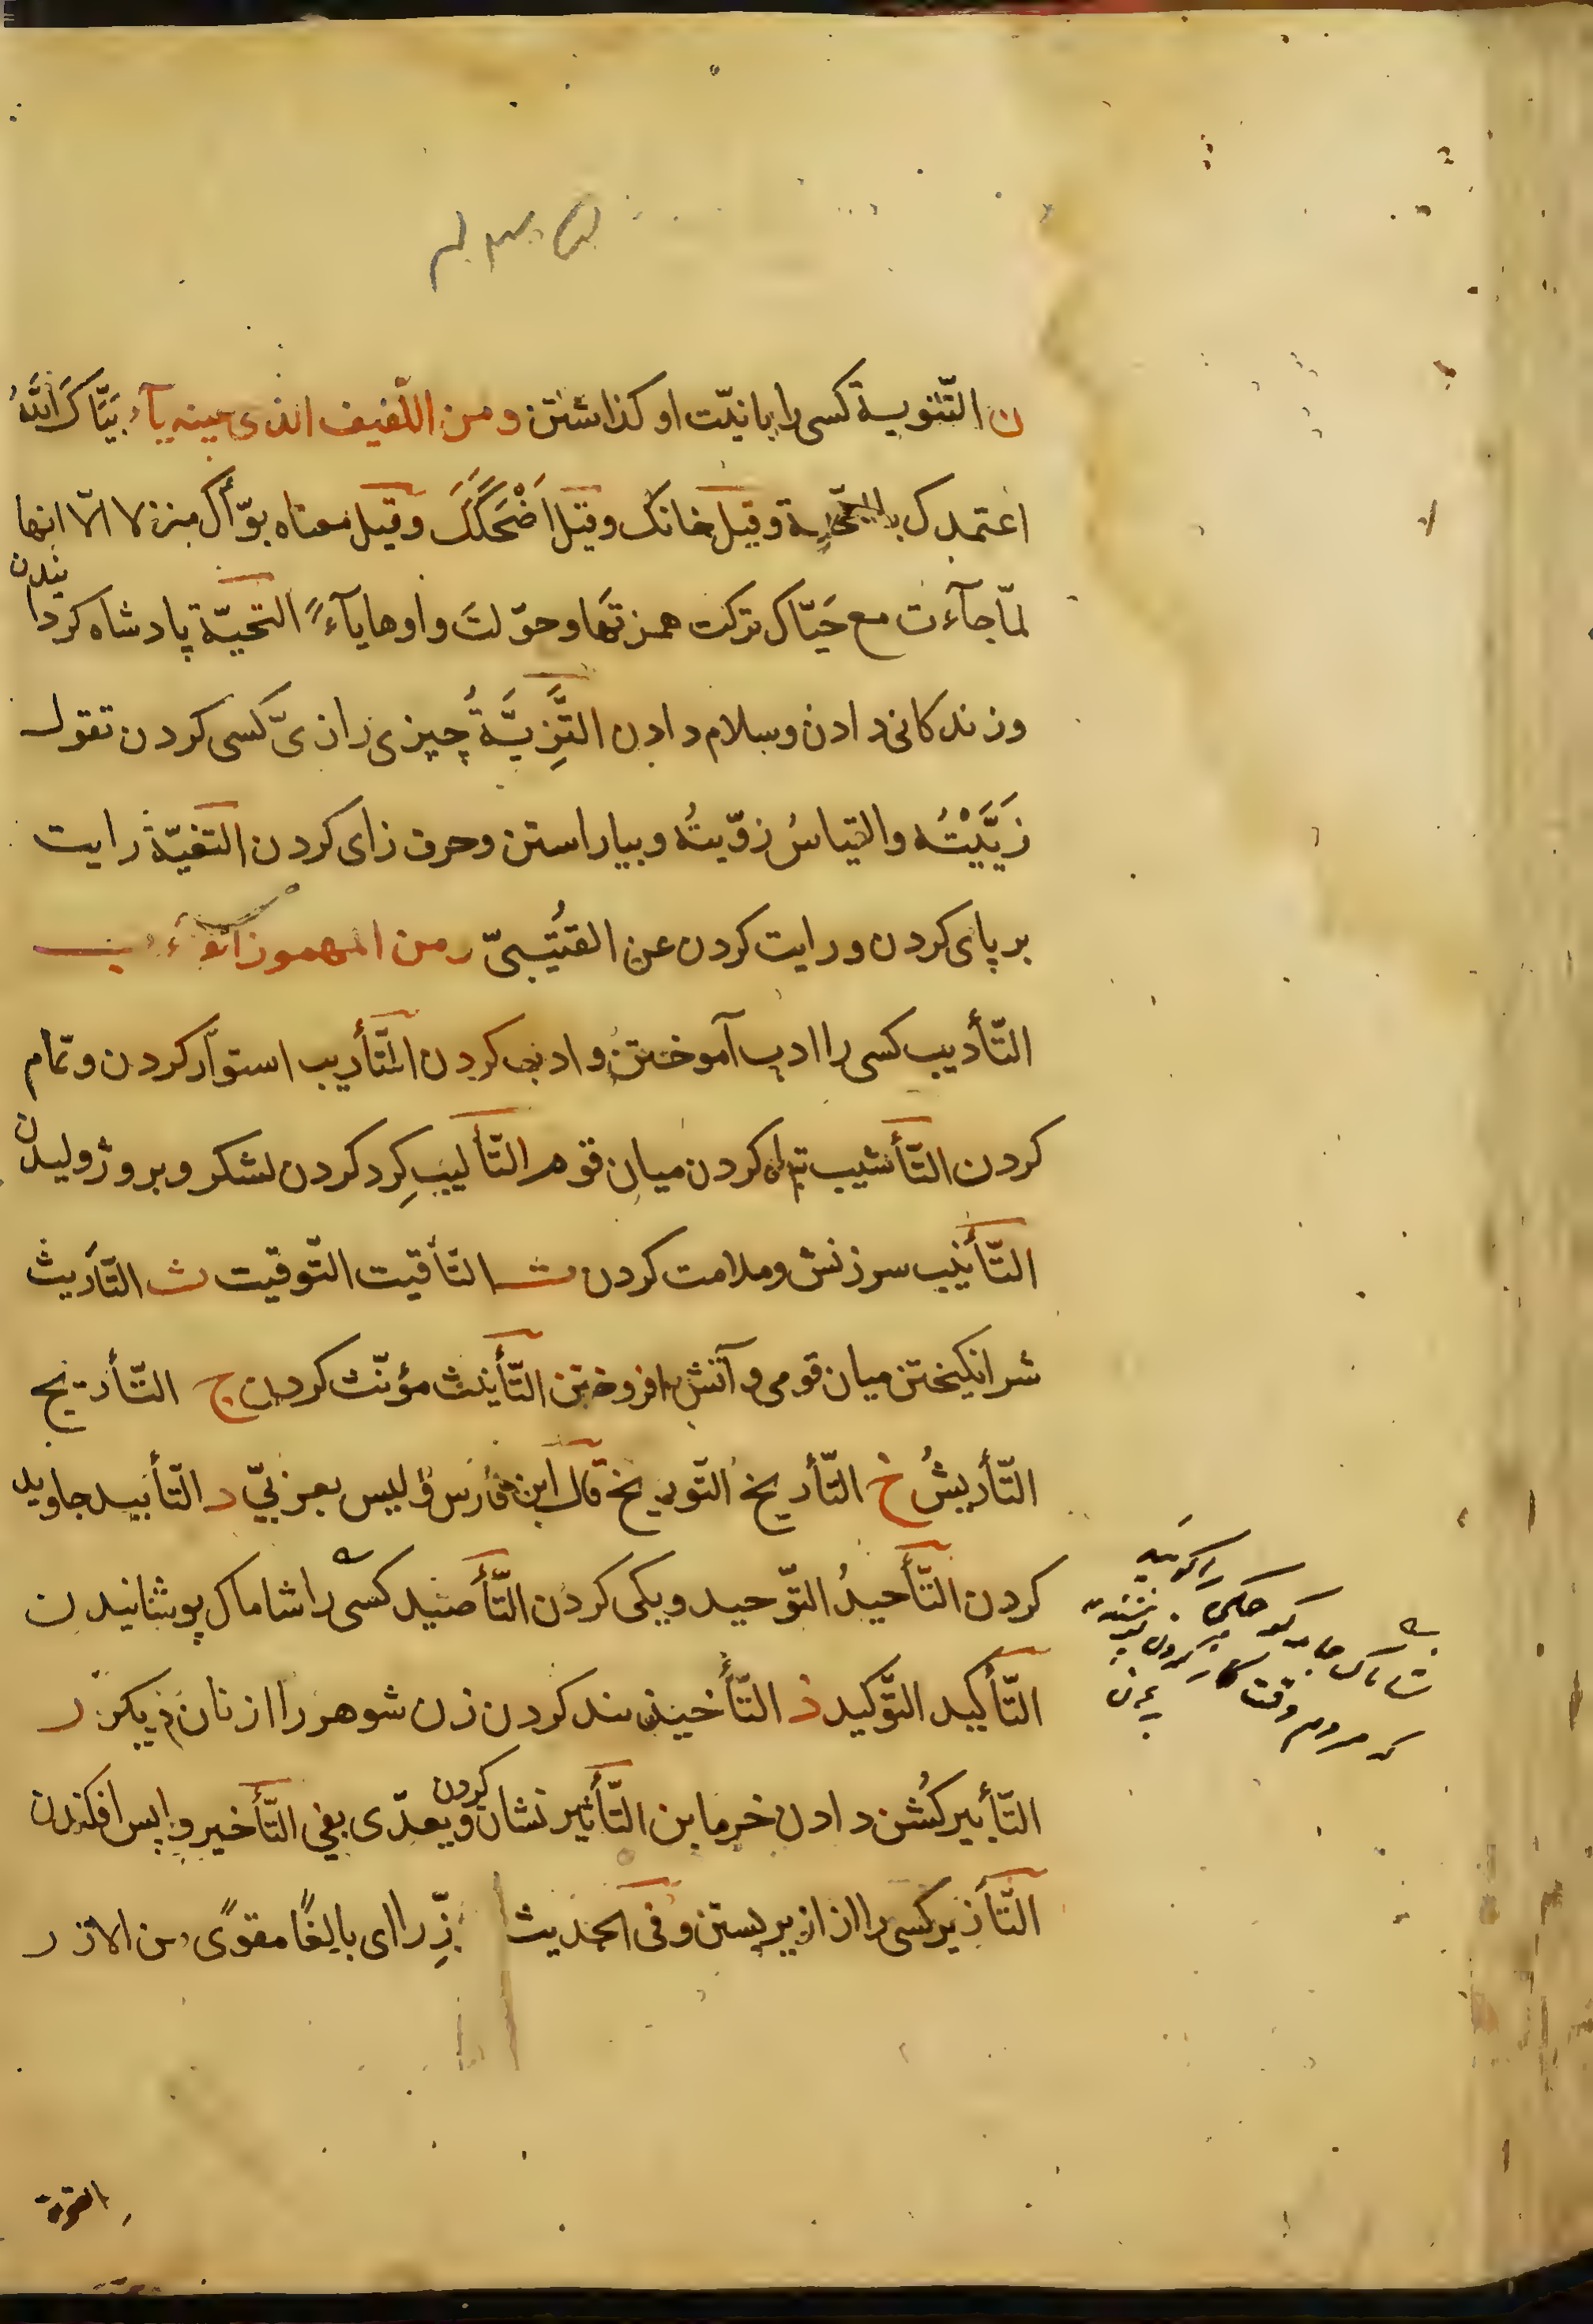 ن التّنویة کسی را بانیّت او کذاشتن ومن اللّفیف الذی عینه یآء بَیَّاکَ اللّٰهُ
اعتمدک بالتّحیة وقیل خانک وقیل اَضْحَکَکَ وقیل معناه بوّأک منزلا الّا انها
لمّا جآءت مع حَیّاک ترکت همزتها وحوّلت واوها یآءً التحیّة پادشاه کردانیدن
وزندکانی دادن وسلام دادن التَّزِیَّةُ چیزی را زیّ کسی کردن تقول
زَیَّیْتُه والقیاسُ زوّیتُه وبیاراستن وحرف زای کردن التغیّة رایت
بر پای کردن ورایت کردن عن القُتَیبیّ ومن المهموز الفآء ب
التّأدیب کسی را ادب آموختن وادب کردن التّأریب استوار کردن وتمام
کردن التّأشیب تباه کردن میان قوم التّألیب کِرد کردن لشکر وبروژولیدن
التّأنیب سرزنش وملامت کردن ت التّأقیت التّوقیت ث التّأریث
شر انکیختن میان قومی وآتش افروختن التّأنیث مؤنّث کردن ج التّأریج
التّأریشُ خ التّأریخ التّوریخ قال ابن فارس ولیس بعربیّ د التّأبید جاوید
کردن التّأحیدُ التّوحید ویکی کردن التّأصید کسی را شاماک پوشانیدن
التّأکید التّوکید ذ التّأخیذ بند کردن زن شوهر را از زنان دیکر ر
التّأبیر کُشن دادن خرمابن التّأثیر نشان کردن ویعدّی بفی التّأخیر واپس افکندن
التّأزیر کسی را ازار بربستن وفی الحدیث زِّرا ای بالغًا مقوًّی من الازر
شاماک جامه کوچکی را کویند
که مردم وقت کار کردن